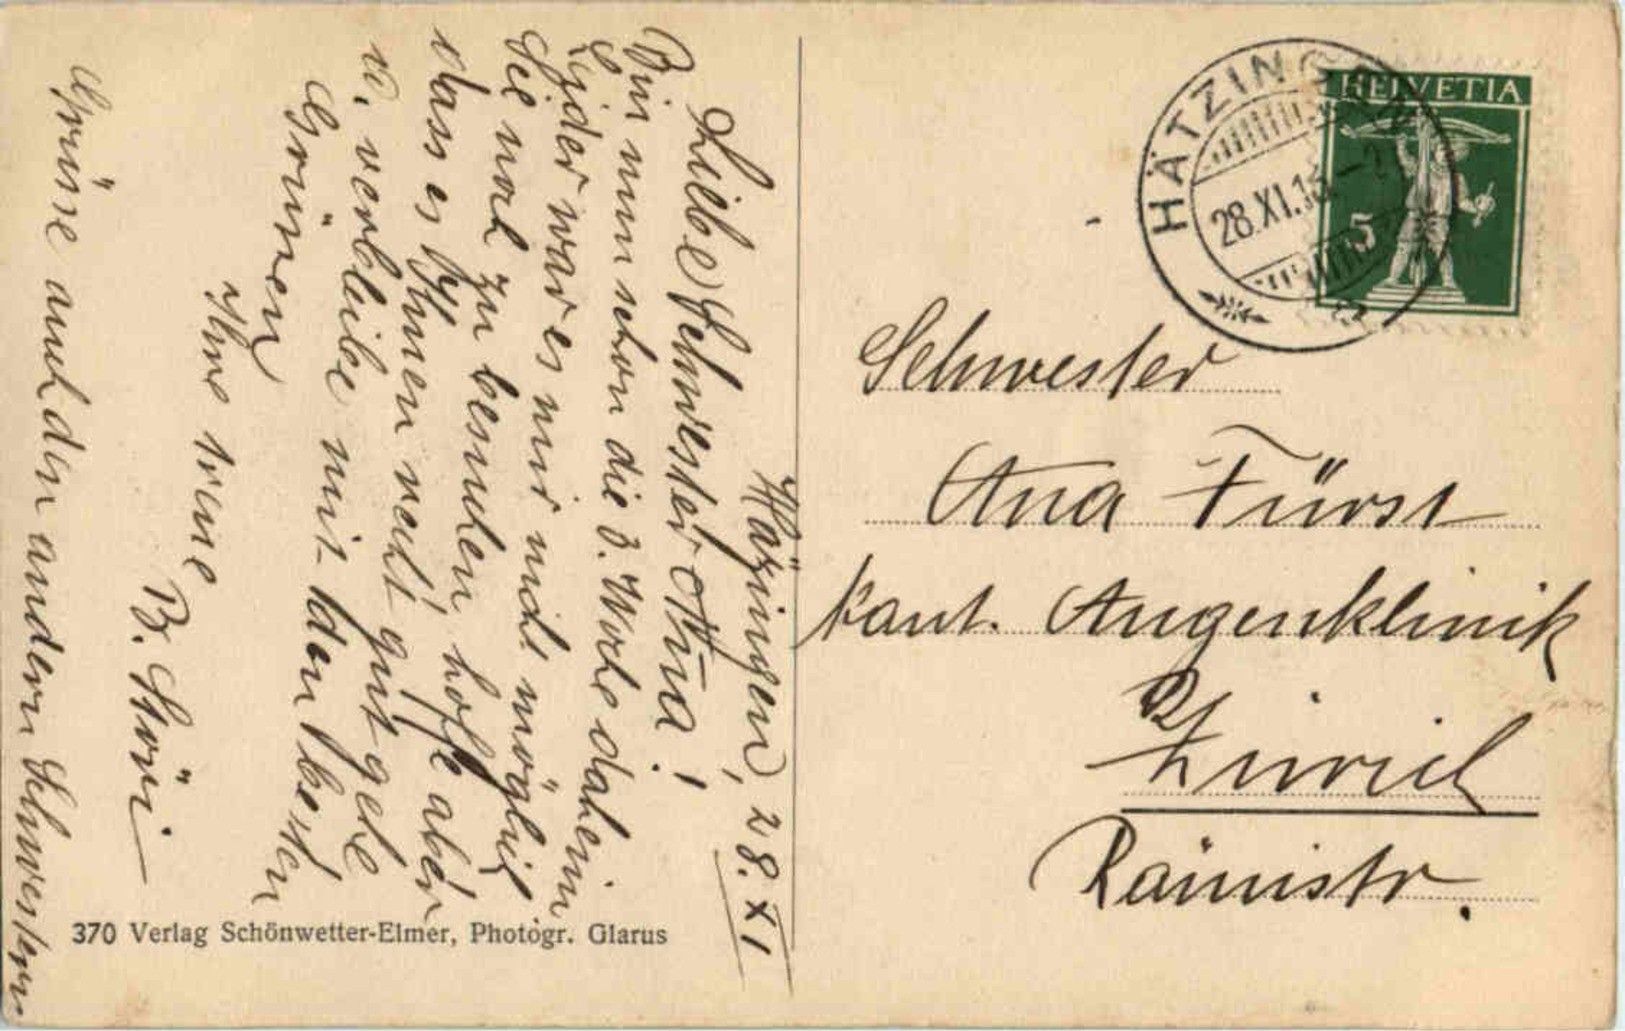 Häzingen, 28. XI
Liebe Schwester Ana!
Bin nun schon die 3. Woche daheim
Leider war es mir nicht möglich
Sie noch zu besuchen hoffe aber
dass es Ihnen recht gut gehe
u. verbleibe mit den besten
Grüssen
Ihre
B. Störi
Grüsse auch den andern Schwestern
370 Verlag Schönwetter-Elmer, Photogr. Glarus
HÄTZINGEN
28.XI.
HELVETIA
5
Schwester
Ana Fürst
kant. Augenklinik
Zürich
Rämistr.